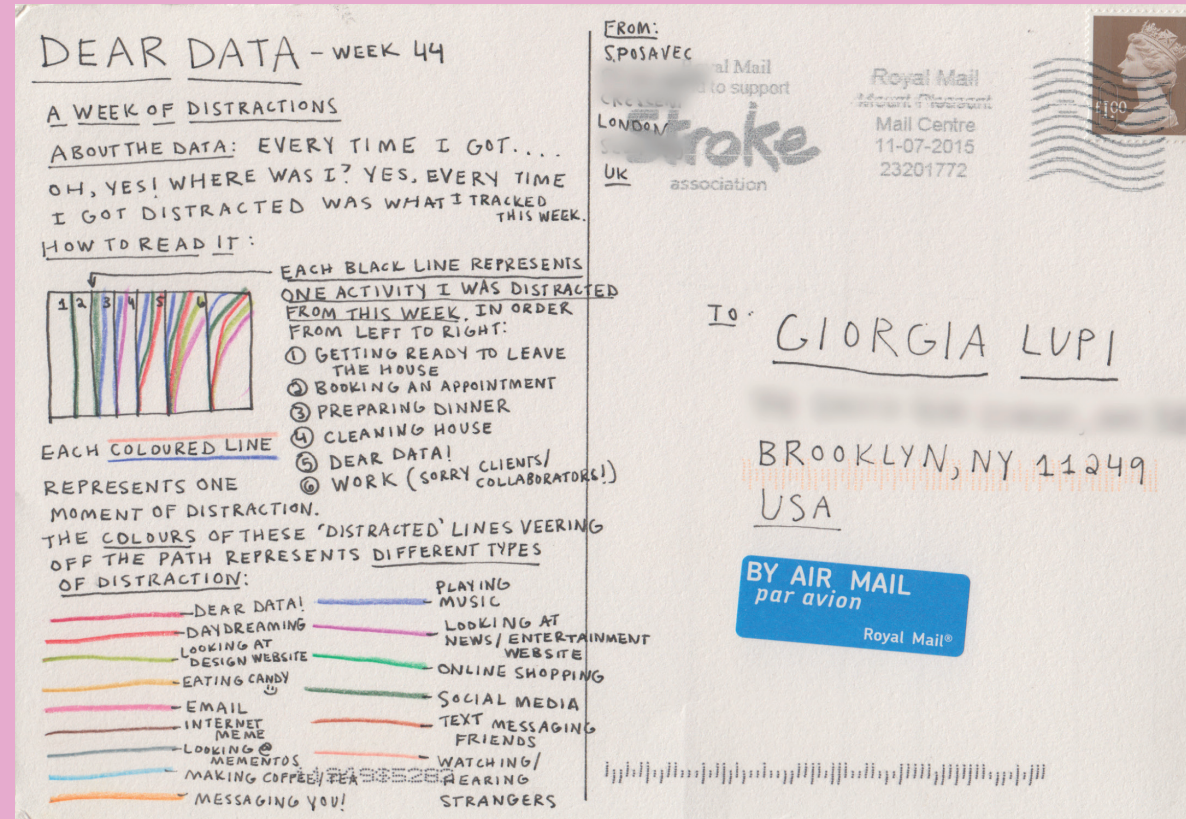 DEAR DATA - WEEK 44
A WEEK OF DISTRACTIONS
ABOUT THE DATA: EVERY TIME I GOT....
OH, YES! WHERE WAS I? YES, EVERY TIME
I GOT DISTRACTED WAS WHAT I TRACKED
THIS WEEK.
HOW TO READ IT:
1 2 3 4 5 6
EACH BLACK LINE REPRESENTS
ONE ACTIVITY I WAS DISTRACTED
FROM THIS WEEK, IN ORDER
FROM LEFT TO RIGHT:
① GETTING READY TO LEAVE
THE HOUSE
② BOOKING AN APPOINTMENT
③ PREPARING DINNER
④ CLEANING HOUSE
⑤ DEAR DATA!
⑥ WORK (SORRY CLIENTS/
COLLABORATORS!)
EACH COLOURED LINE
REPRESENTS ONE
MOMENT OF DISTRACTION.
THE COLOURS OF THESE 'DISTRACTED' LINES VEERING
OFF THE PATH REPRESENTS DIFFERENT TYPES
OF DISTRACTION:
DEAR DATA!
DAYDREAMING
LOOKING AT
DESIGN WEBSITE
EATING CANDY
EMAIL
INTERNET
MEME
LOOKING @
MEMENTOS
MAKING COFFEE/TEA
MESSAGING YOU!
PLAYING
MUSIC
LOOKING AT
NEWS/ENTERTAINMENT
WEBSITE
ONLINE SHOPPING
SOCIAL MEDIA
TEXT MESSAGING
FRIENDS
WATCHING/
HEARING
STRANGERS
FROM:
S.POSAVEC
LONDON
UK
al Mail
to support
Stroke
association
Royal Mail
Mount Pleasant
Mail Centre
11-07-2015
23201772
£1.00
TO:
GIORGIA LUPI
BROOKLYN, NY 11249
USA
BY AIR MAIL
par avion
Royal Mail®